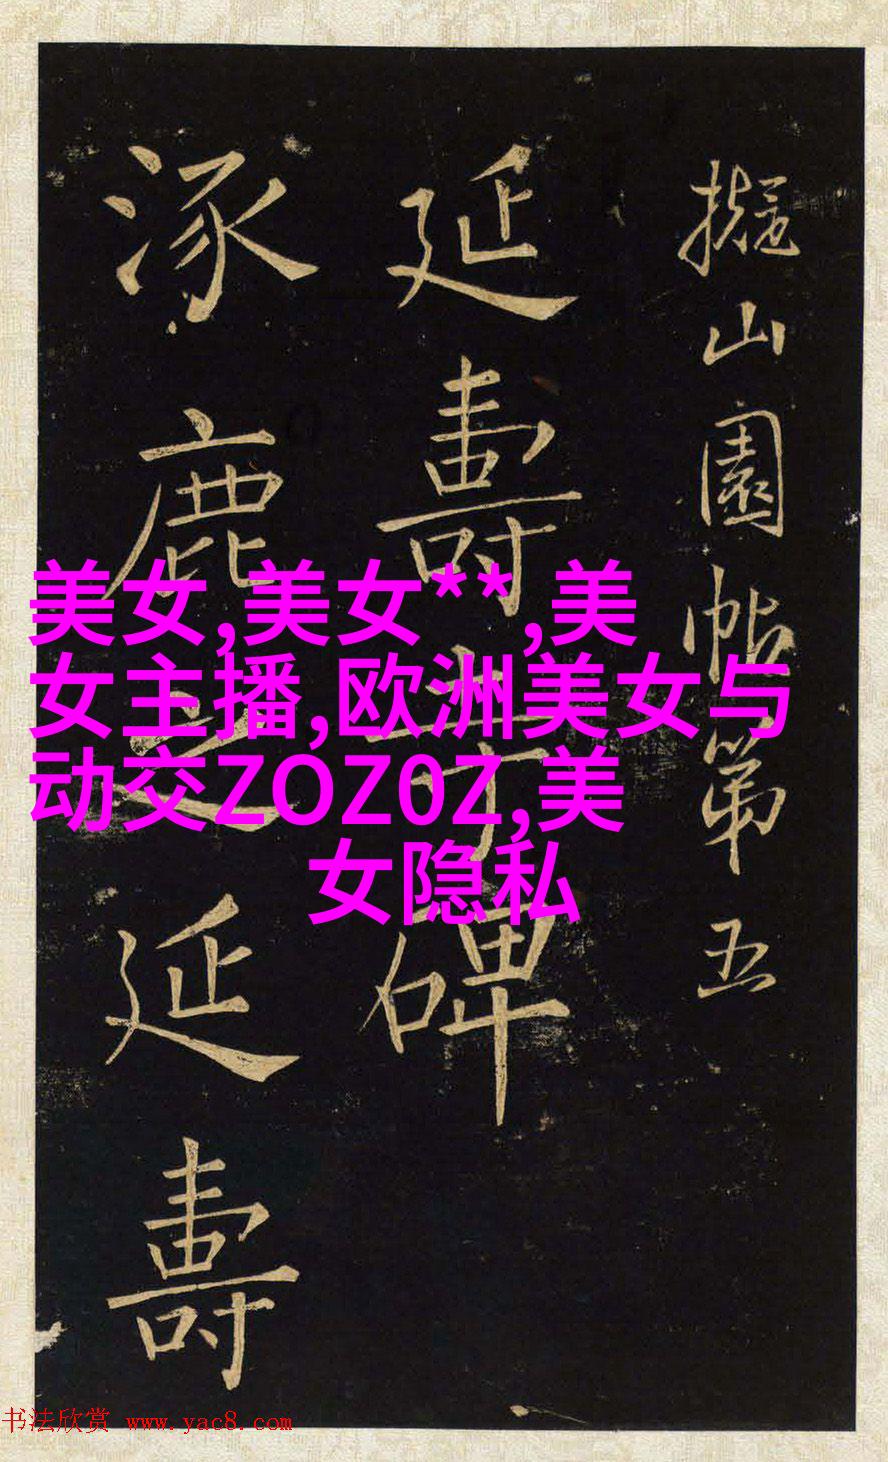 擬山園帖第五
延壽寺碑
涿鹿之延壽
美女,美女**,美
女主播,欧洲美女与
动交ZOZ0Z,美
女隐私
书法欣赏 www.yac8.com